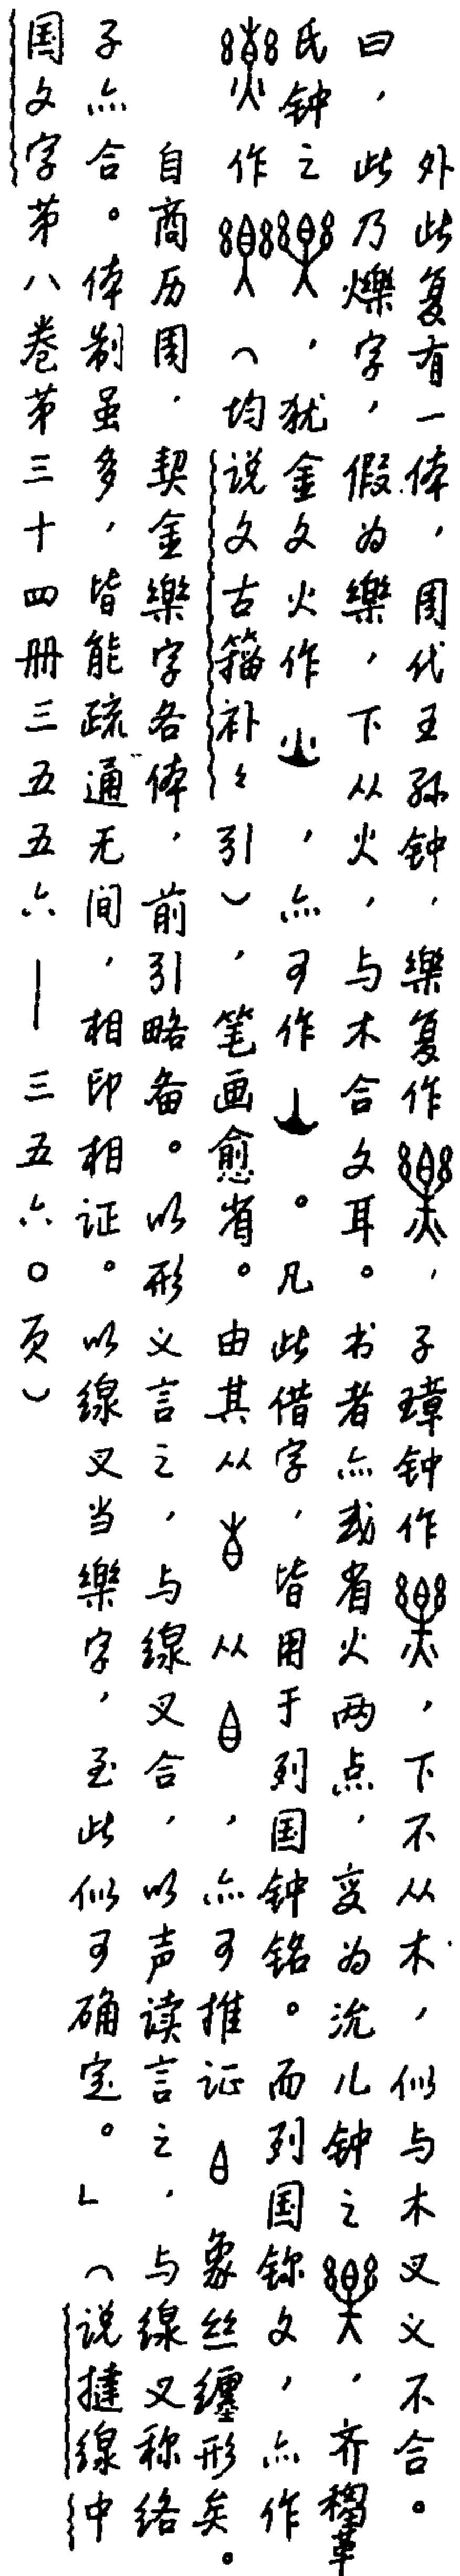 外此复有一体，周代王孙钟，樂复作，子璋钟作，下不从木，似与木叉义不合。
曰，此乃爍字，假为樂，下从火，与木合文耳。书者亦或省火两点，变为沇儿钟之，齐革
氏钟之，犹金文火作，亦可作。凡此借字，皆用于列国钟铭。而列国鉨文，亦作
作（均说文古籀补々引），笔画愈省。由其从从，亦可推证象丝缠形矣。
自商历周，契金樂字各体，前引略备。以形义言之，与線叉合，以声读言之，与線叉称络
子亦合。体制虽多，皆能疏通无间，相印相证。以線叉当樂字，至此似可确定。」（说撻線中
国文字第八卷第三十四册三五五六—三五六〇页）